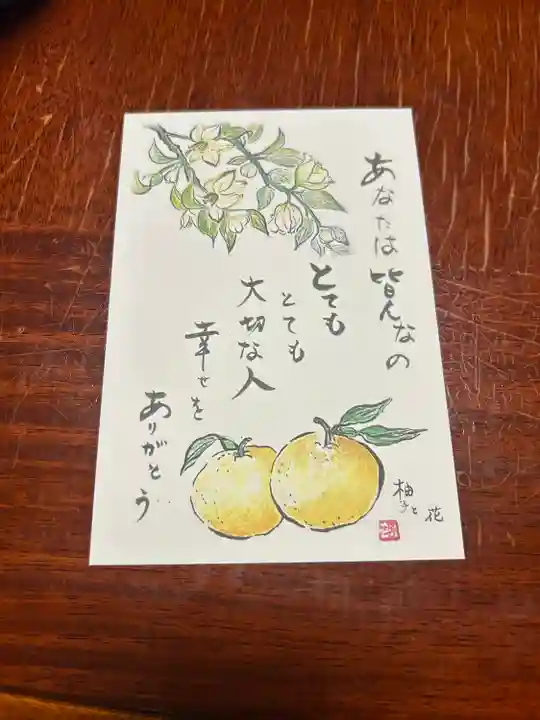 あなたは皆んなの
とても
とても
大切な人
幸せを
ありがとう
柚子と
花